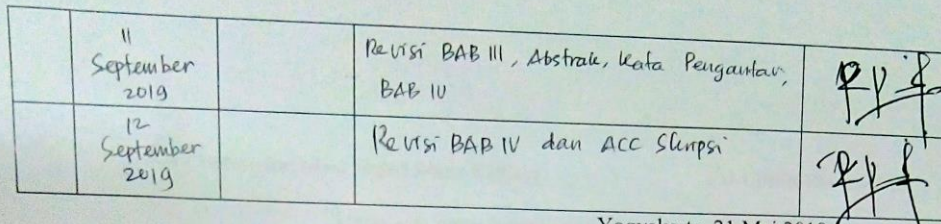 11
September
2019
Revisi BAB III, Abstrak, Kata Pengantar,
BAB IV
12
September
2019
Revisi BAB IV dan ACC Skripsi